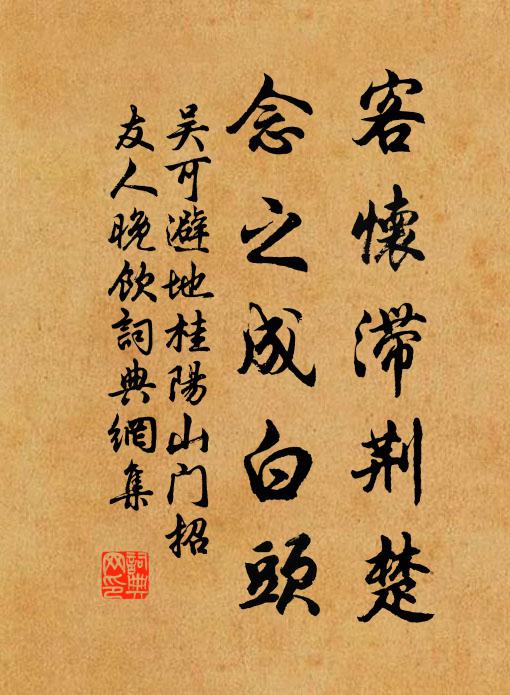 客懷滞荆楚
念之成白頭
吴可避地桂陽山门招
友人晚飲詞典網集
詞典
网印